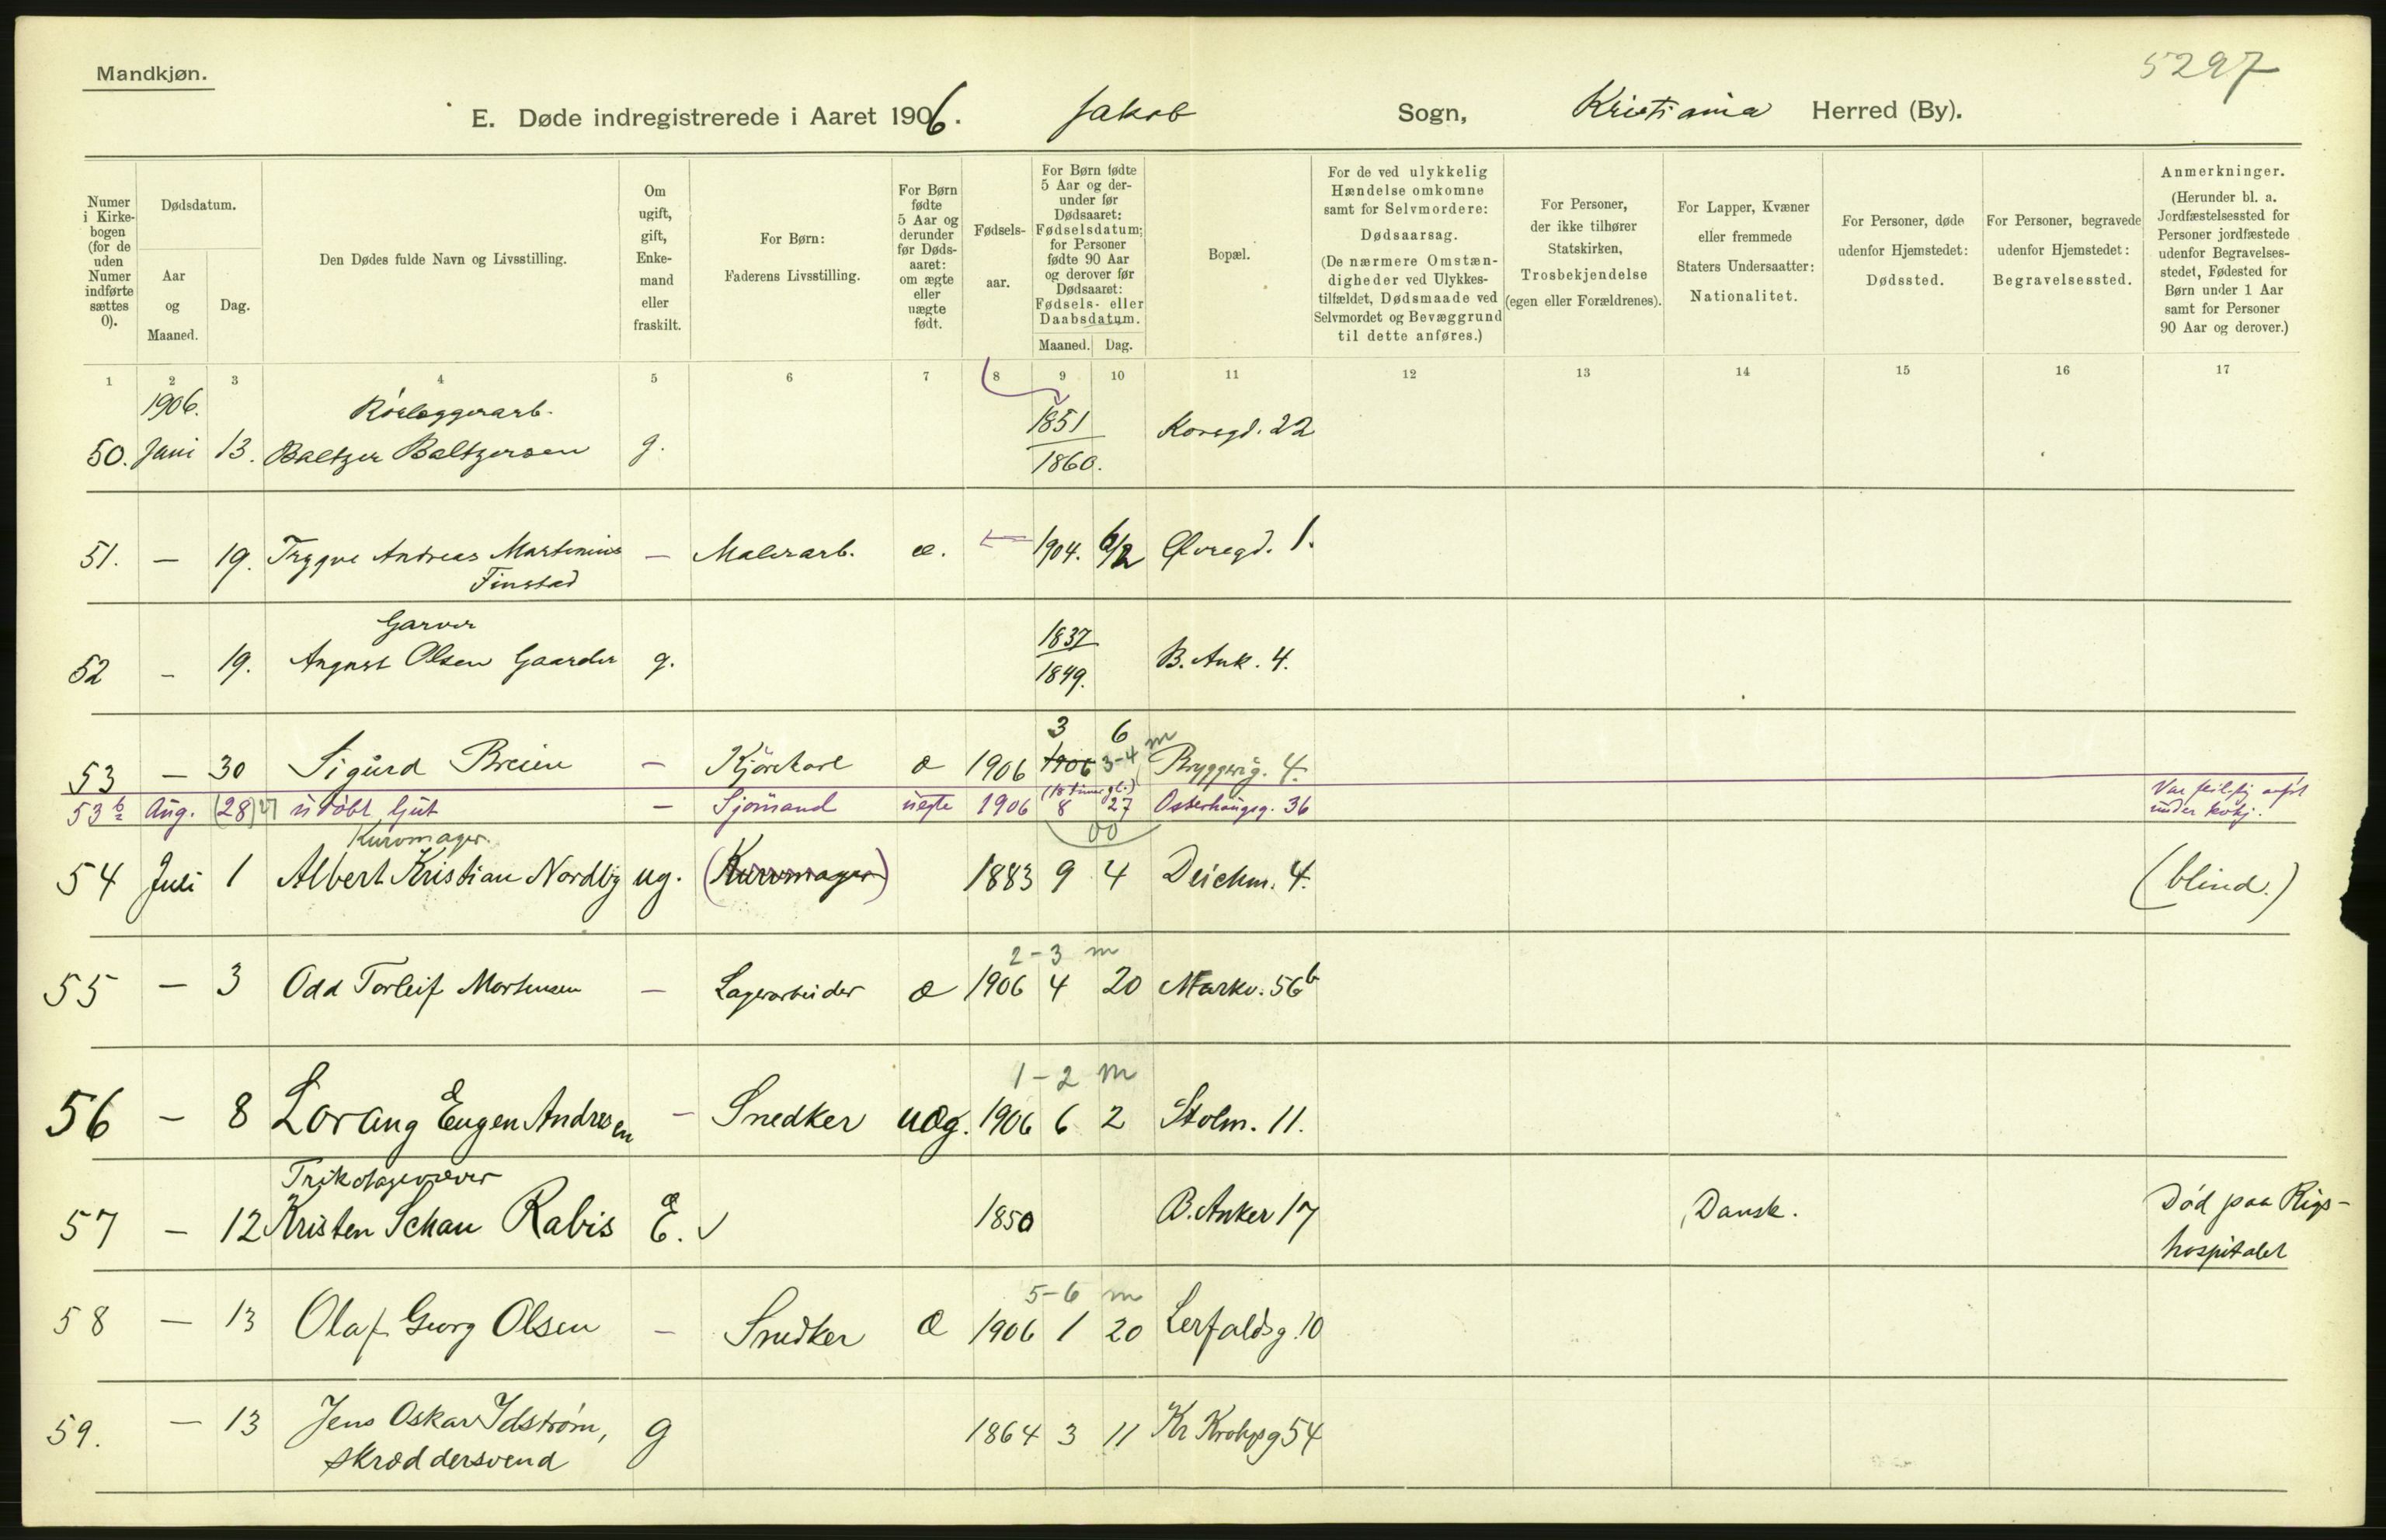 Mandkjøn.
5297
E. Døde indregistrerede i Aaret 1906. Jakob Sogn, Kristiania Herred (By).
Numer i Kirkebogen (for de uden Numer indførte sættes 0).
Dødsdatum.
Aar og Maaned.
Dag.
Den Dødes fulde Navn og Livsstilling.
Om ugift, gift, Enkemand eller fraskilt.
For Børn:
Faderens Livsstilling.
For Børn fødte 5 Aar og derunder før Dødsaaret: om ægte eller uægte født.
Fødselsaar.
For Børn fødte 5 Aar og derunder før Dødsaaret: Fødselsdatum; for Personer fødte 90 Aar og derover før Dødsaaret: Fødsels- eller Daabsdatum.
Maaned. Dag.
Bopæl.
For de ved ulykkelig Hændelse omkomne samt for Selvmordere: Dødsaarsag. (De nærmere Omstændigheder ved Ulykkestilfældet, Dødsmaade ved Selvmordet og Bevæggrund til dette anføres.)
For Personer, der ikke tilhører Statskirken, Trosbekjendelse (egen eller Forældrenes).
For Lapper, Kvæner eller fremmede Staters Undersaatter: Nationalitet.
For Personer, døde udenfor Hjemstedet: Dødssted.
For Personer, begravede udenfor Hjemstedet: Begravelsessted.
Anmerkninger.
(Herunder bl. a. Jordfæstelsessted for Personer jordfæstede udenfor Begravelsesstedet, Fødested for Børn under 1 Aar samt for Personer 90 Aar og derover.)
1 2 3 4 5 6 7 8 9 10 11 12 13 14 15 16 17
1906. Rørlæggerarb. 1851
50. Juni 13. Baltzer Baltzersen g. 1860. Korsgd. 22
51. — 19. Trygve Andreas Martinius — Malerarb. æ. 1904. 6/2 Øvregd. 1.
Finstad
Garver 1837
52 - 19. August Olsen Gaarder g. 1849. B. Ank. 4.
3 6
53 — 30 Sigurd Breien — Kjørekarl æ 1906 1906 3-4 m Bryggerig. 4.
53 b Aug. (28) 27 udøbt gut — Sjømand uegte 1906 (18 timer gl.) 8 27 Osterhausg. 36 Var feilig anført under kvkj.
00
Kurvmager.
54 Juli 1 Albert Kristian Nordby ug. (Kurvmager) 1883 9 4 Deichm. 4. (blind.)
2-3 m
55 — 3 Odd Torleif Mortensen — Lagerarbeider æ 1906 4 20 Markv. 56b
1-2 m
56 — 8 Lorang Eugen Andresen - Snedker uæg. 1906 6 2 Stolm. 11.
Trikotagevæver
57 — 12 Kristen Schau Rabis E. 1850 B. Anker 17 Dansk. Død paa Rigshospitalet
5-6 m
58 — 13 Olaf Georg Olsen — Snedker æ 1906 1 20 Lerfaldsg. 10
59. — 13 Jens Oskar Idstrøm, g 1864 3 11 Kr Krohgsg 54
skræddersvend